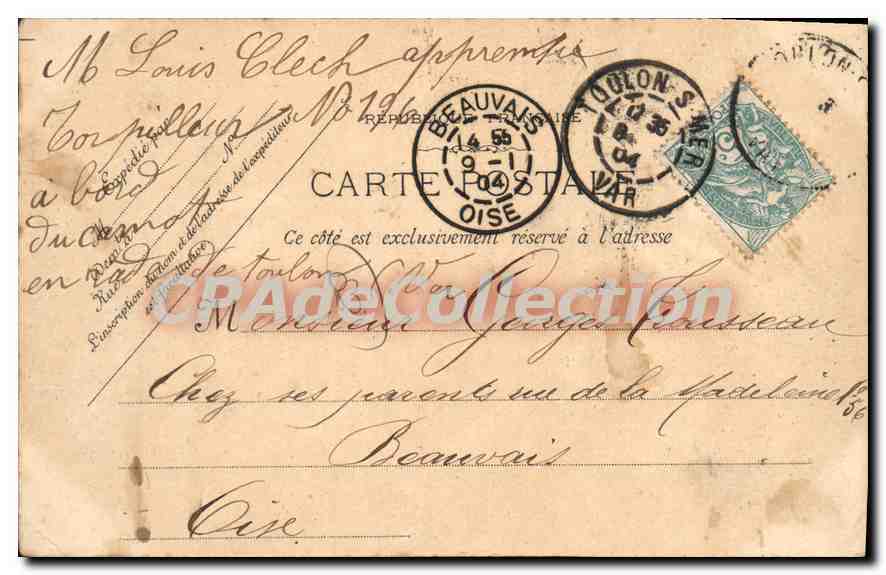 M Louis Clech apprentie
Torpilleur No 126
à bord
du
en rade de toulon Var
RÉPUBLIQUE FRANÇAISE
CARTE POSTALE
Ce côté est exclusivement réservé à l'adresse
Expédié par
M
N°
Demeurant
Rue
L'inscription du nom et de l'adresse de l'expéditeur
est facultative
BEAUVAIS
4 55
9 - 1
04
OISE
TOULON-S-MER
12 35
04
VAR
CPAdeCollection
Monsieur Georges Rousseau
Chez ses parents rue de la Madeleine
56
Beauvais
Oise